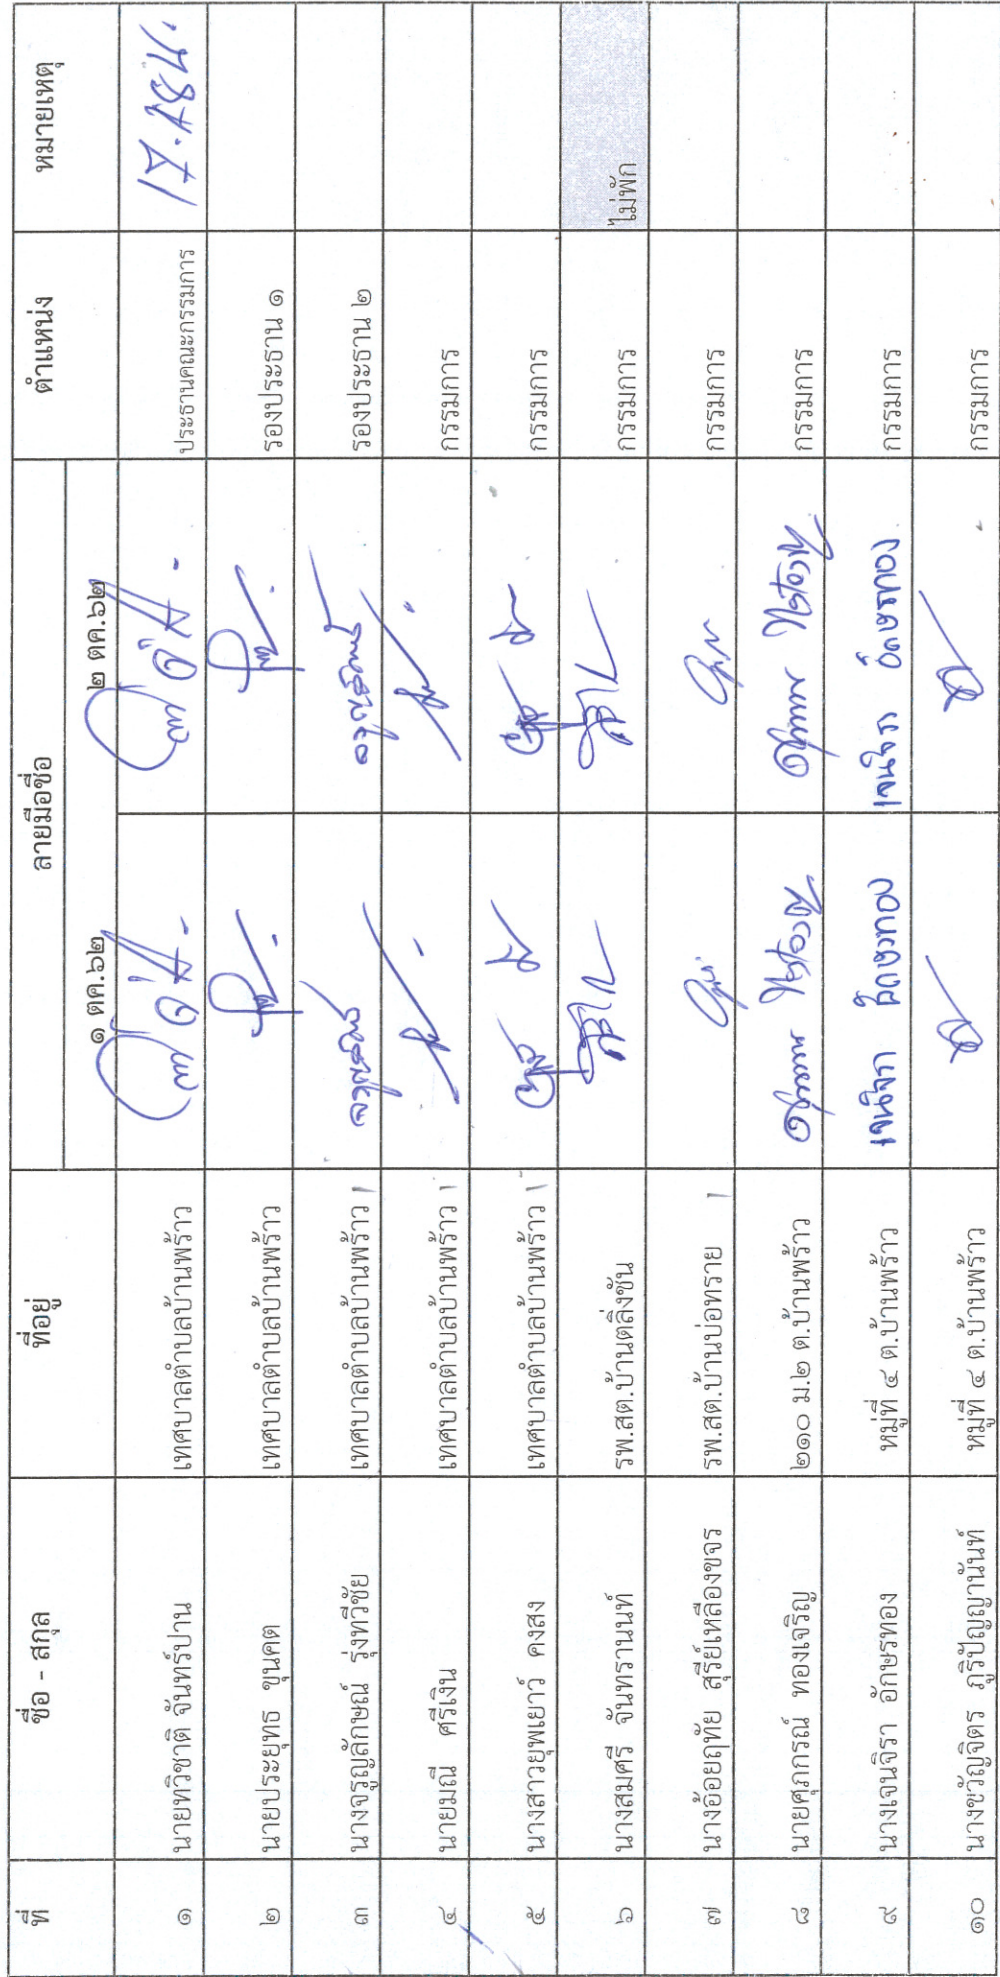 ที่ ชื่อ - สกุล ที่อยู่ ลายมือชื่อ ตำแหน่ง หมายเหตุ
๑ ตค.๖๒ ๒ ตค.๖๒
๑ นายทวิชาติ จันทร์ปาน เทศบาลตำบลบ้านพร้าว ประธานคณะกรรมการ
๒ นายประยุทธ ขุนคต เทศบาลตำบลบ้านพร้าว รองประธาน ๑
๓ นางจรูญลักษณ์ รุ่งทวีชัย เทศบาลตำบลบ้านพร้าว รองประธาน ๒
๔ นายมณี ศรีเงิน เทศบาลตำบลบ้านพร้าว กรรมการ
๕ นางสาวยุพเยาว์ คงสง เทศบาลตำบลบ้านพร้าว กรรมการ
๖ นางสมศรี จันทรานนท์ รพ.สต.บ้านตลิ่งชัน กรรมการ ไม่พัก
๗ นางอ้อยฤทัย สุรีย์เหลืองขจร รพ.สต.บ้านบ่อทราย กรรมการ
๘ นายศุภกรณ์ ทองเจริญ ๒๑๐ ม.๒ ต.บ้านพร้าว กรรมการ
๙ นางเจนจิรา อักษรทอง หมู่ที่ ๔ ต.บ้านพร้าว เจนจิรา อักษรทอง เจนจิรา อักษรทอง กรรมการ
๑๐ นางขวัญจิตร ภูริปัญญานันท์ หมู่ที่ ๔ ต.บ้านพร้าว กรรมการ